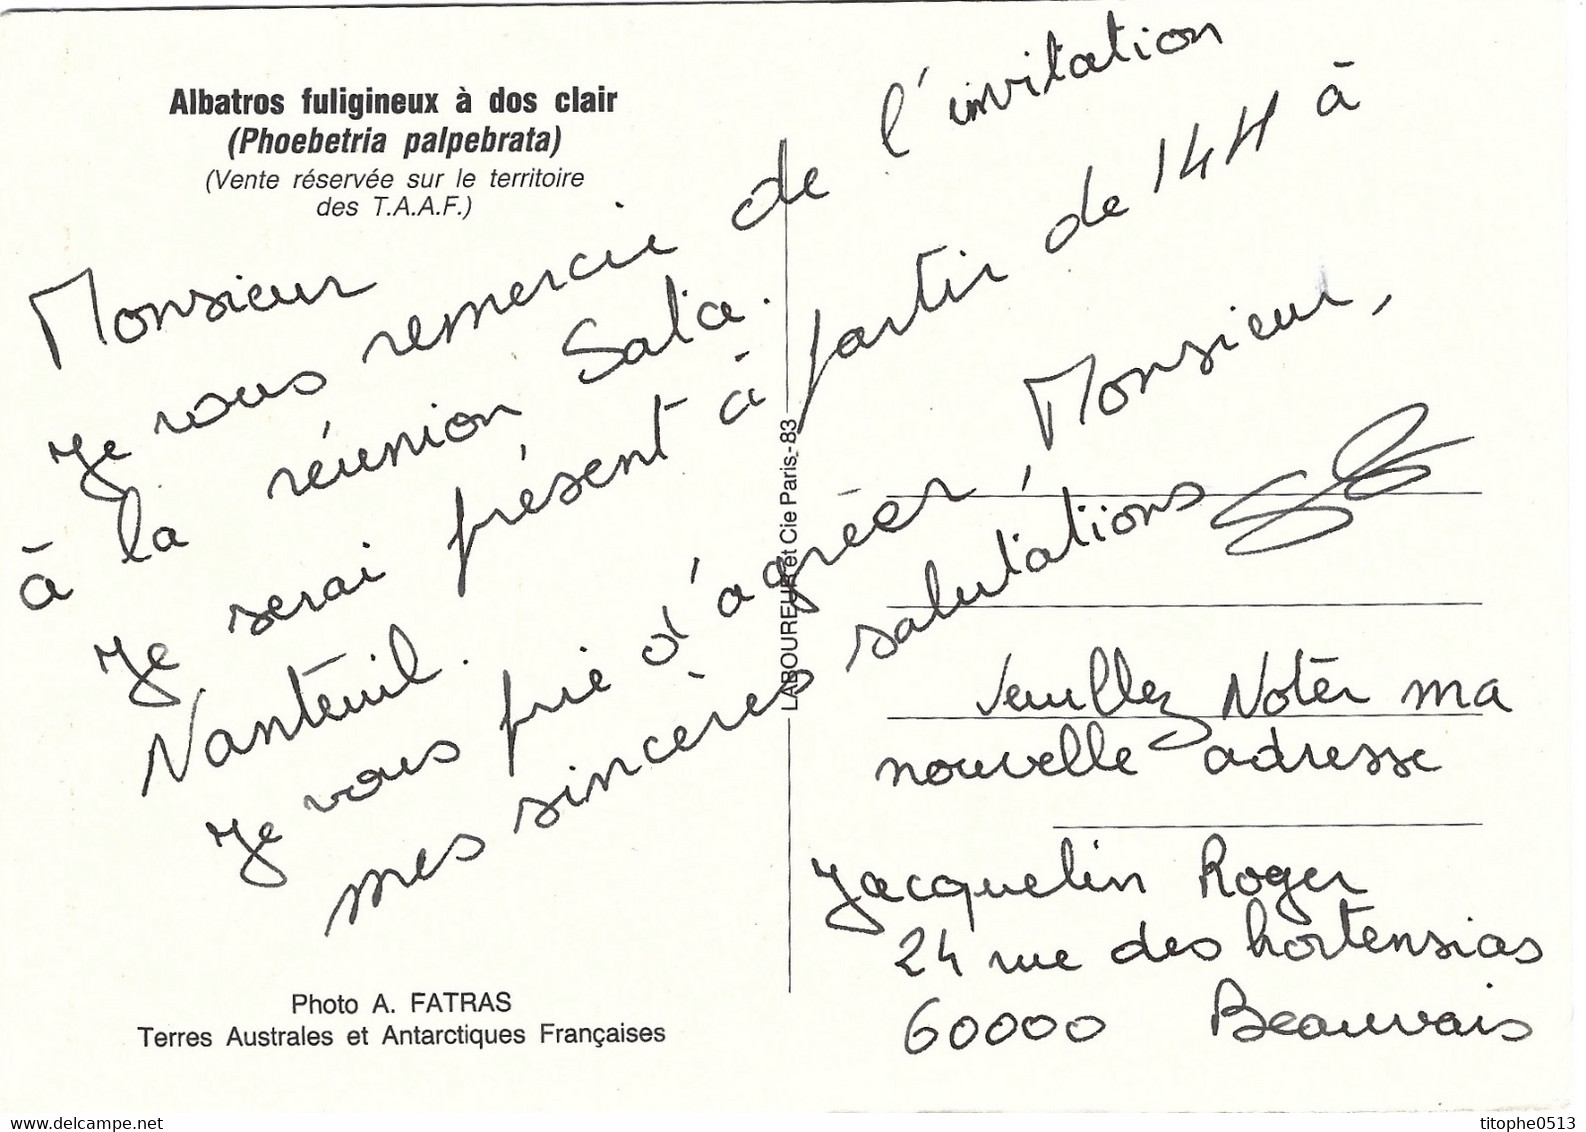 Albatros fuligineux à dos clair
(Phoebetria palpebrata)
(Vente réservée sur le territoire
des T.A.A.F.)
Monsieur
Je vous remercie de l'invitation
à la réunion Salca.
Je serai présent à partir de 14H à
Nanteuil.
Je vous prie d'agréer, Monsieur,
mes sincères salutations
LABOUREUR et Cie Paris.-83
Veuillez Noter ma
nouvelle adresse
Jacquelin Roger
24 rue des hortensias
60000 Beauvais
Photo A. FATRAS
Terres Australes et Antarctiques Françaises
www.delcampe.net
titophe0513